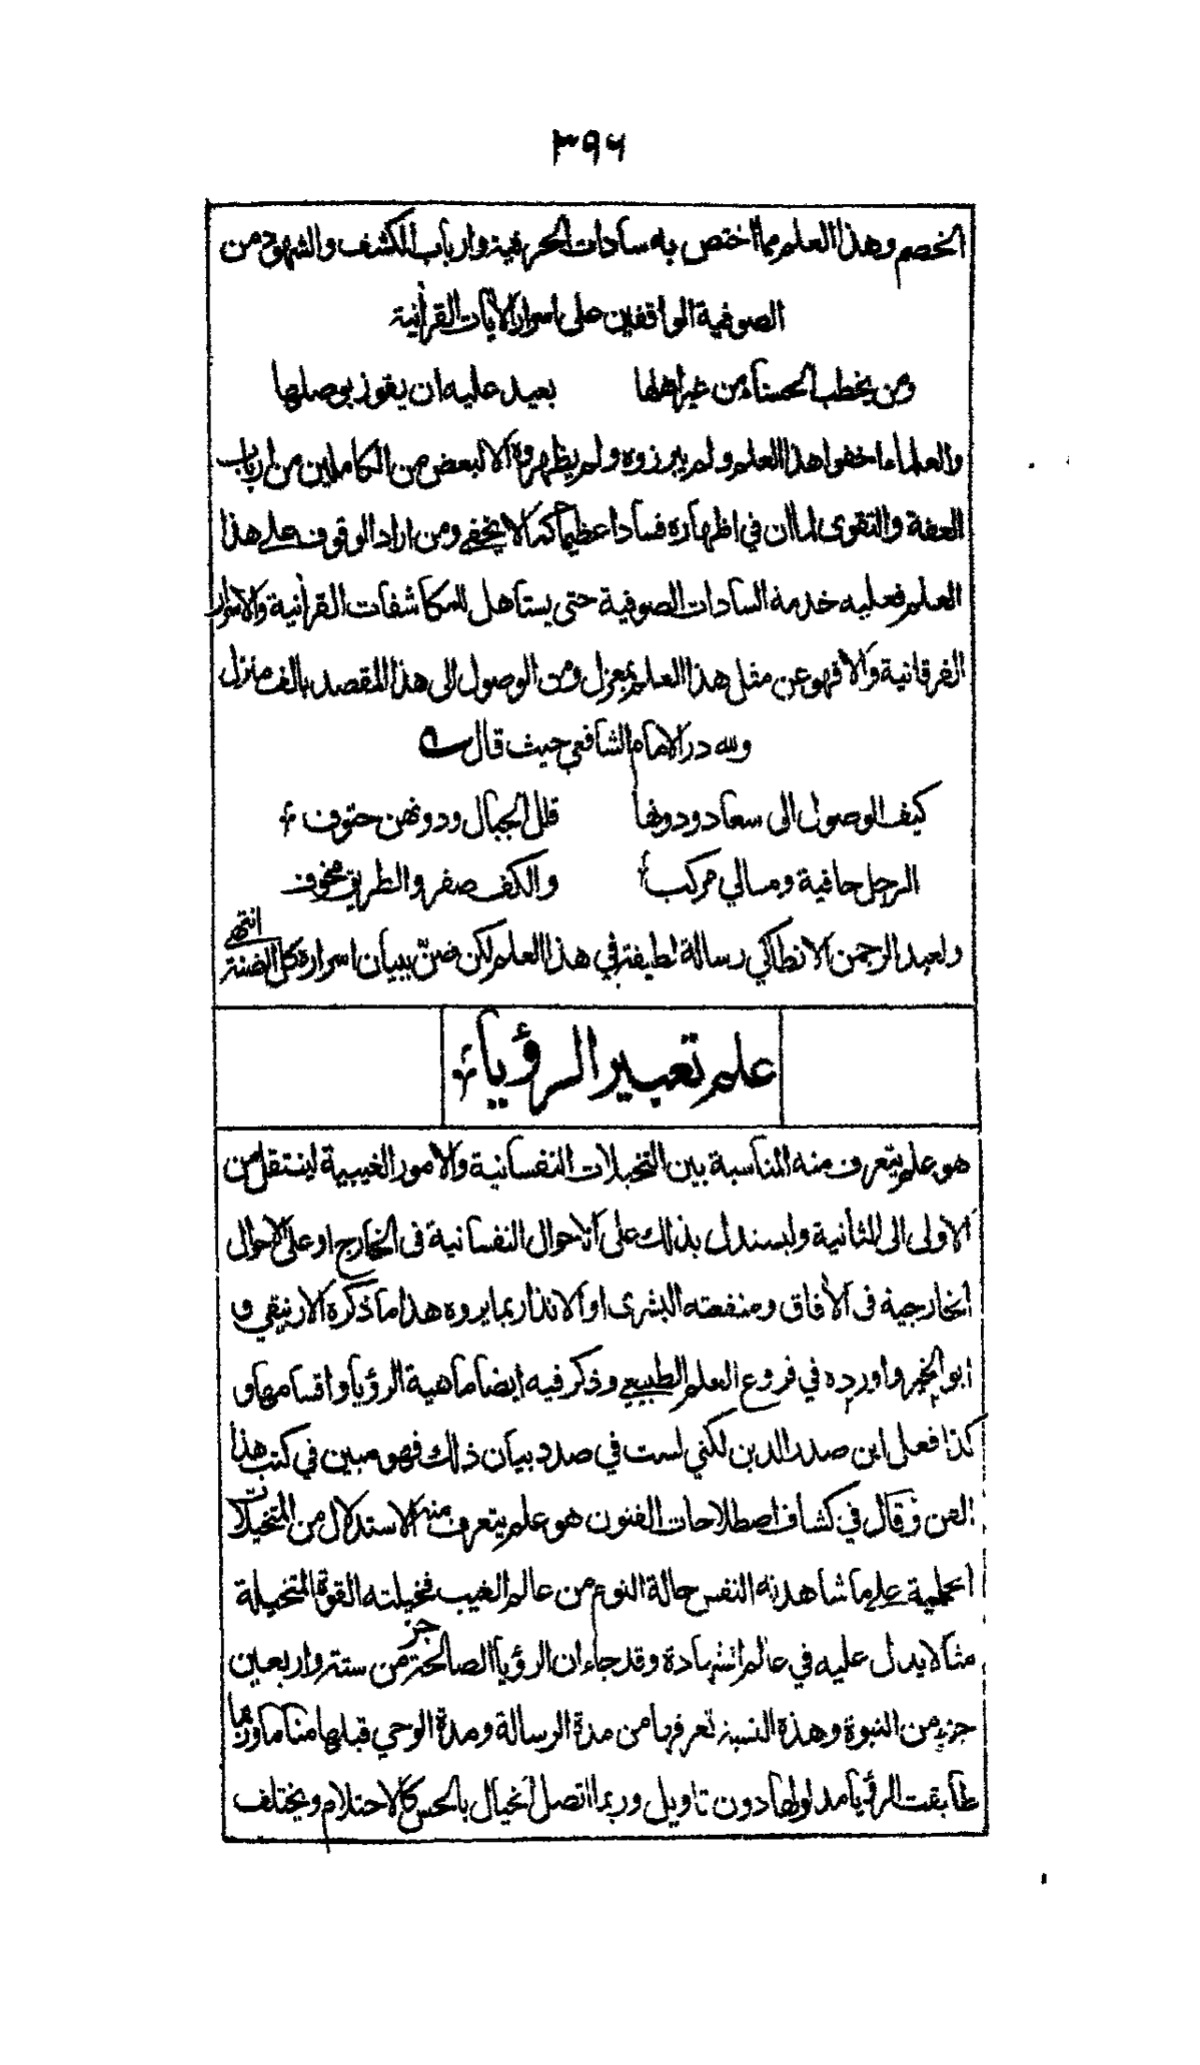 ٣٩٦
الخصم وهذا العلم مما اختص به سادات الحرفية وارباب الكشف والشهود من
الصوفية الواقفين على اسرار الآيات القرآنية
ومن يخطب الحسناء من غير اهلها بعيد عليه ان يفوز بوصلها
والعلماء اخفوا هذا العلم ولم يبرزوه ولم يظهروه الا لبعض من الكاملين من ارباب
العفة والتقوى لما ان في اظهاره فسادا عظيما كما لا يخفى ومن اراد الوقوف على هذا
العلم فعليه خدمة السادات الصوفية حتى يستاهل للمكاشفات القرآنية والاسرار
الفرقانية والا فهو عن مثل هذا العلم بمعزل ومن الوصول الى هذا المقصد بالف منزل
ولله در الامام الشافعي حيث قال
كيف الوصول الى سعاد ودونها قلل الجبال ودونهن حتوف
الرجل حافية ومالي مركب والكف صفر والطريق مخوف
ولعبد الرحمن الانطاكي رسالة لطيفة في هذا العلم لكن ضنّ ببيان اسراره كل الضنة انتهى
علم تعبير الرؤيا
هو علم يتعرف منه المناسبة بين التخيلات النفسانية والامور الغيبية لينتقل من
الاولى الى الثانية وليستدل بذلك على الاحوال النفسانية في الخارج او على الاحوال
الخارجية في الآفاق ومنفعته البشرى او الانذار بما يروه هذا ما ذكره الارنيقي و
ابو الخير واورده في فروع العلم الطبيعي وذكر فيه ايضا ماهية الرؤيا واقسامها و
كذا فعل ابن صدر الدين لكني لست في صدد بيان ذلك فهو مبين في كتب هذا
الفن وقال في كشاف اصطلاحات الفنون هو علم يتعرف منه الاستدلال من المتخيلات
الحلمية على ما شاهدته النفس حالة النوم من عالم الغيب فخيلته القوة المتخيلة
مثالا يدل عليه في عالم الشهادة وقد جاء ان الرؤيا الصالحة جزء من ستة واربعين
جزء من النبوة وهذه النسبة تعرفها من مدة الرسالة ومدة الوحي قبلها مناما وربما
طابقت الرؤيا مدلولها دون تاويل وربما اتصل الخيال بالحس كالاحتلام ويختلف